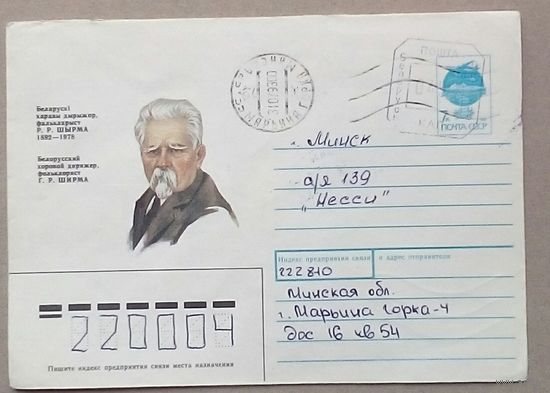 Беларускі
харавы дырыжор,
фалькларыст
Р. Р. ШЫРМА
1892—1978
Белорусский
хоровой дирижер,
фольклорист
Г. Р. ШИРМА
ПОШТА
ПОЧТА СССР
г. Минск
а/я 139
„Несси"
Индекс предприятия связи и адрес отправителя
222810
Минская обл.
г. Марьина Горка-4
дос 16 кв 54
220004
Пишите индекс предприятия связи места назначения